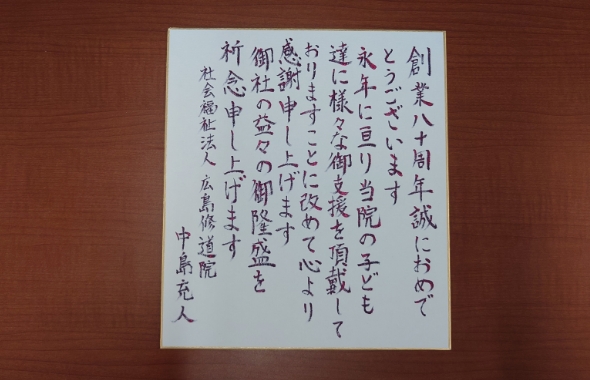 創業八十周年誠におめで
とうございます
永年に亘り当院の子ども
達に様々な御支援を頂戴して
おりますことに改めて心より
感謝申し上げます
御社の益々の御隆盛を
祈念申し上げます
社会福祉法人 広島修道院
中島充人